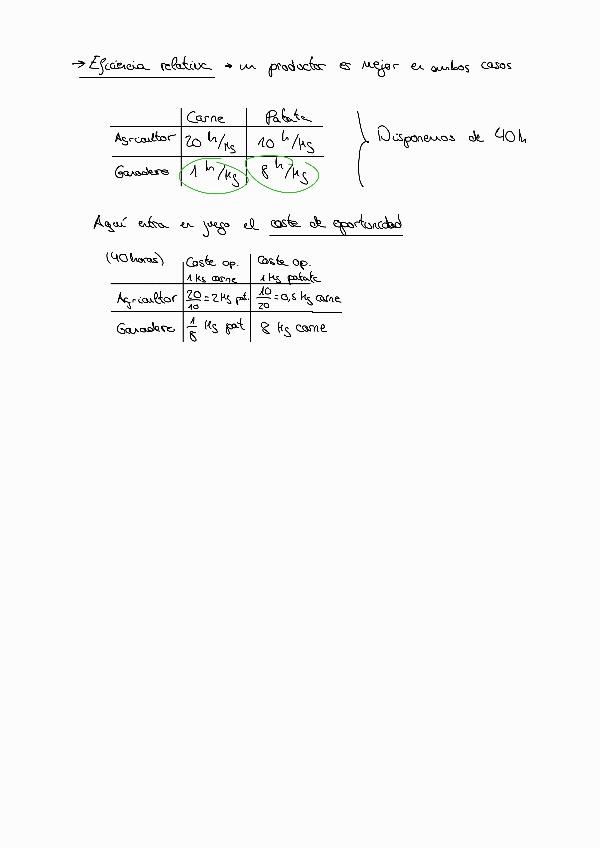 → Eficiencia relativa → un productor es mejor en ambos casos
Carne Patata
Agricultor 20 h/kg 10 h/kg
Ganadero 1 h/kg 8 h/kg
} Disponemos de 40h
Aquí entra en juego el coste de oportunidad
(40 horas) Coste op. 1 kg carne Coste op. 1 kg patata
Agricultor 20/10 = 2 kg pat. 10/20 = 0,5 kg carne
Ganadero 1/8 kg pat 8 kg carne